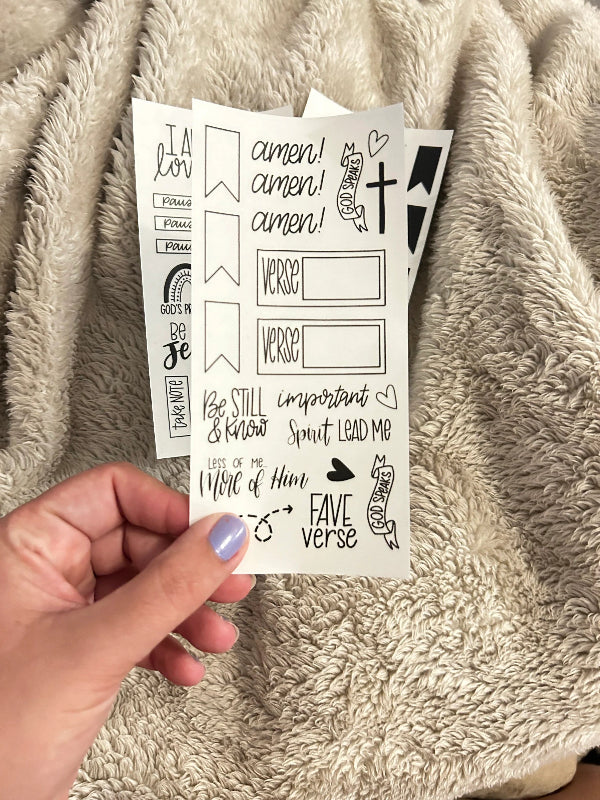 amen!
amen!
amen!
GOD SPEAKS
VERSE
VERSE
Be STILL
& Know
important
Spirit LEAD ME
LESS OF ME...
More of Him
FAVE
verse
GOD SPEAKS
I
Pause
Pause
GOD'S
BE
Take NOTE